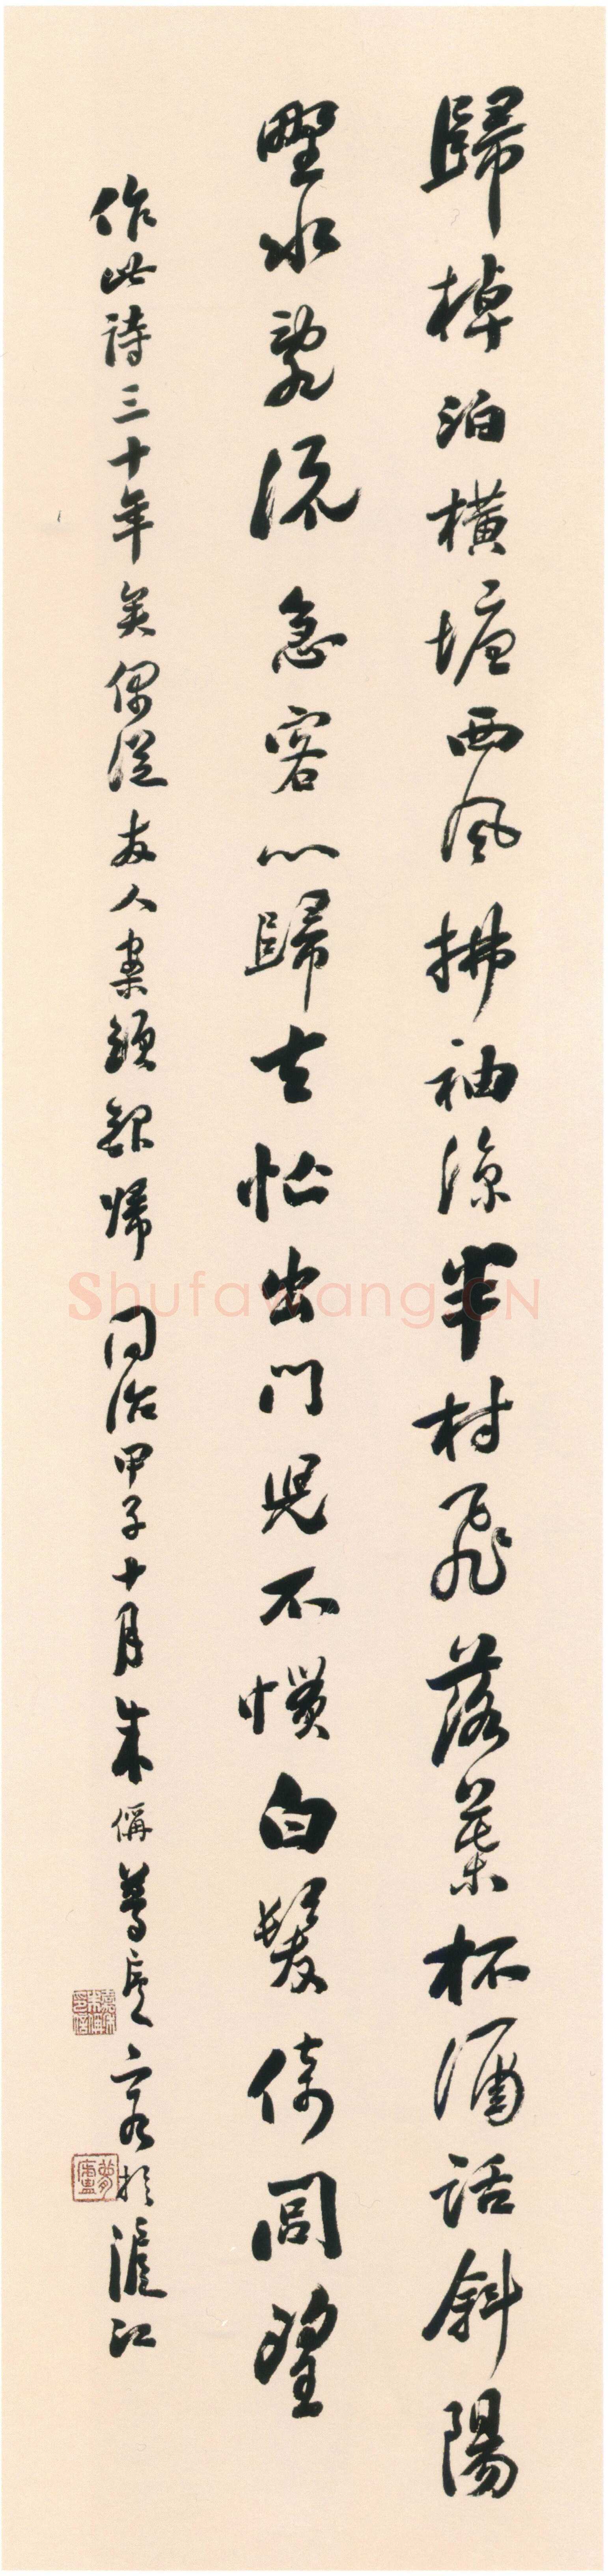 歸棹泊橫塘西風拂袖涼半村飛落葉杯酒話斜陽
野水亂流急客心歸去忙出門児不慣白髮倚閭望
作此詩三十年矣偶從友人案頭錄歸 同治甲子十月朱偁夢廬客於滬江
ShufaWang.CN
夢廬